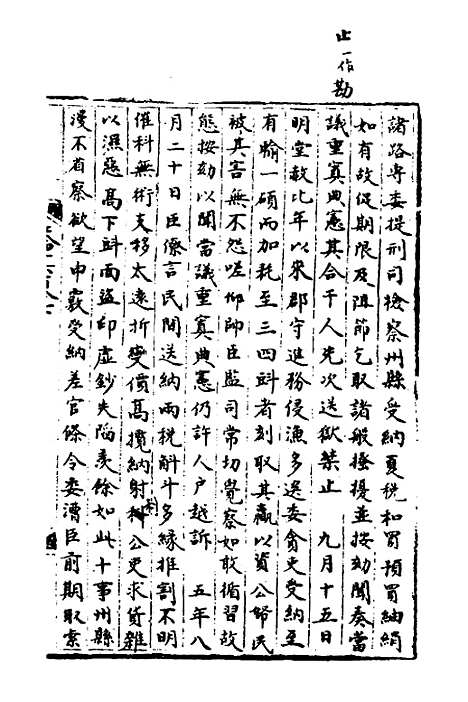 止一作勘
諸路専委提刑司檢察州縣受納夏稅和買預買紬絹
如有故促期限及阻節乞取諸般搔擾並按劾聞奏當
議重寘典憲其合干人先次送獄禁止　九月十五日
明堂赦比年以來郡守進務侵漁多遣委貪吏受納至
有輸一碩而加耗至三四斛者刻取其贏以資公帑民
被其害無不怨嗟仰帥臣監司常切覺察如敢循習故
態按劾以聞當議重寘典憲仍許人户越訴　五年八
月二十日臣僚言民間送納兩稅斛斗多緣推割不明
催科無術支移太遠折變價髙攬納射利公吏求貨雜
以濕惡髙下斛面盜印虛鈔失陷羨餘如此十事州縣
漫不省察欲望申嚴受納差官條令委漕臣前期取索